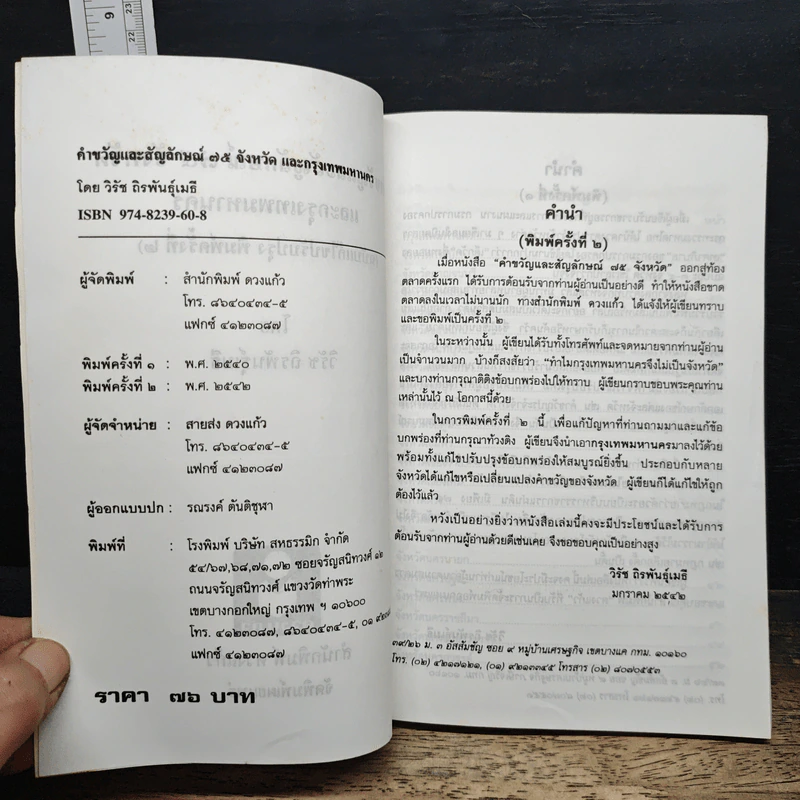 9
23
22
คำขวัญและสัญลักษณ์ ๗๕ จังหวัด และกรุงเทพมหานคร
โดย วิรัช ถิรพันธุ์เมธี
ISBN 974-8239-60-8
ผู้จัดพิมพ์ : สำนักพิมพ์ ดวงแก้ว
โทร. ๘๖๔๐๔๓๔-๕
แฟกซ์ ๔๑๒๓๐๘๗
พิมพ์ครั้งที่ ๑ : พ.ศ. ๒๕๔๐
พิมพ์ครั้งที่ ๒ : พ.ศ. ๒๕๔๒
ผู้จัดจำหน่าย : สายส่ง ดวงแก้ว
โทร. ๘๖๔๐๔๓๔-๕
แฟกซ์ ๔๑๒๓๐๘๗
ผู้ออกแบบปก : รณรงค์ ตันติชุฬา
พิมพ์ที่ : โรงพิมพ์ บริษัท สหธรรมิก จำกัด
๕๔/๖๗,๖๘,๗๑,๗๒ ซอยจรัญสนิทวงศ์ ๑๒
ถนนจรัญสนิทวงศ์ แขวงวัดท่าพระ
เขตบางกอกใหญ่ กรุงเทพ ฯ ๑๐๖๐๐
โทร. ๔๑๒๓๐๘๗, ๘๖๔๐๔๓๔-๕, ๐๑
แฟกซ์ ๔๑๒๓๐๘๗
ราคา ๗๖ บาท
คำนำ
(พิมพ์ครั้งที่ ๒)
เมื่อหนังสือ "คำขวัญและสัญลักษณ์ ๗๕ จังหวัด" ออกสู่ท้อง
ตลาดครั้งแรก ได้รับการต้อนรับจากท่านผู้อ่านเป็นอย่างดี ทำให้หนังสือขาด
ตลาดลงในเวลาไม่นานนัก ทางสำนักพิมพ์ ดวงแก้ว ได้แจ้งให้ผู้เขียนทราบ
และขอพิมพ์เป็นครั้งที่ ๒
ในระหว่างนั้น ผู้เขียนได้รับทั้งโทรศัพท์และจดหมายจากท่านผู้อ่าน
เป็นจำนวนมาก บ้างก็สงสัยว่า "ทำไมกรุงเทพมหานครจึงไม่เป็นจังหวัด"
และบางท่านกรุณาติติงข้อบกพร่องไปให้ทราบ ผู้เขียนกราบขอบพระคุณท่าน
เหล่านั้นไว้ ณ โอกาสนี้ด้วย
ในการพิมพ์ครั้งที่ ๒ นี้ เพื่อแก้ปัญหาที่ท่านถามมาและแก้ข้อ
บกพร่องที่ท่านกรุณาท้วงติง ผู้เขียนจึงนำเอากรุงเทพมหานครมาลงไว้ด้วย
พร้อมทั้งแก้ไขปรับปรุงข้อบกพร่องให้สมบูรณ์ยิ่งขึ้น ประกอบกับหลาย
จังหวัดได้แก้ไขหรือเปลี่ยนแปลงคำขวัญของจังหวัด ผู้เขียนก็ได้แก้ไขให้ถูก
ต้องไว้แล้ว
หวังเป็นอย่างยิ่งว่าหนังสือเล่มนี้คงจะมีประโยชน์และได้รับการ
ต้อนรับจากท่านผู้อ่านด้วยดีเช่นเคย จึงขอขอบคุณเป็นอย่างสูง
วิรัช ถิรพันธุ์เมธี
มกราคม ๒๕๔๒
๓๙/๒๖ ม. ๓ อัสสัมชัญ ซอย ๙ หมู่บ้านเศรษฐกิจ เขตบางแค กทม. ๑๐๑๖๐
โทร. (๐๒) ๔๒๑๗๑๒๑, (๐๑) ๙๒๑๓๓๔๕ โทรสาร (๐๒) ๘๐๗๐๕๕๓